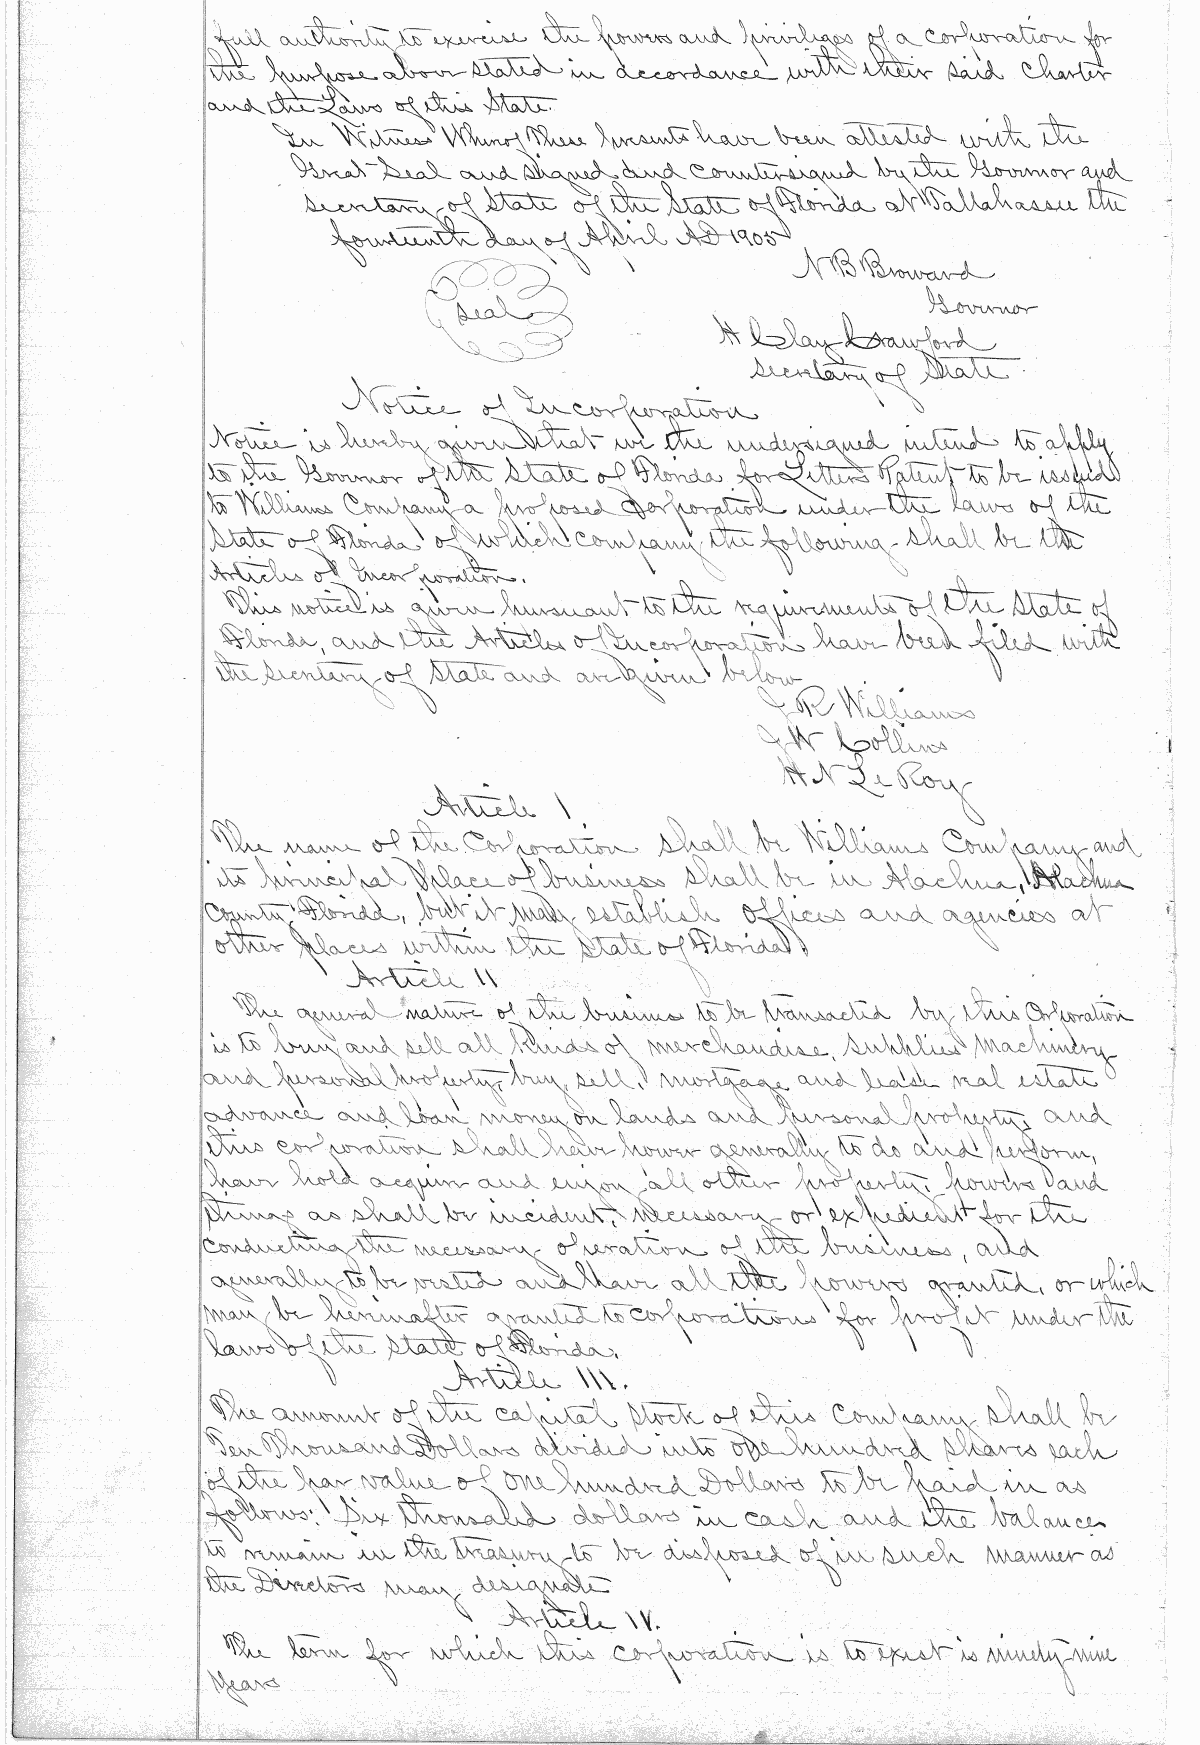 full authority to exercise the powers and privileges of a corporation for
the purpose above stated in accordance with their said charter
and the Laws of this State.
In Witness Whereof These presents have been attested with the
Great Seal and signed and countersigned by the Governor and
Secretary of State of the State of Florida at Tallahassee the
fourteenth day of April AD 1905
N B Broward
Governor
Seal
H Clay Crawford
Secretary of State.
Notice of Incorporation
Notice is hereby given that we the undersigned intend to apply
to the Governor of the State of Florida for Letters Patent to be issued
to Williams Company a proposed Corporation under the laws of the
State of Florida of which company the following shall be the
Articles of Incorporation.
This notice is given pursuant to the requirements of the State of
Florida, and the Articles of Incorporation have been filed with
the Secretary of State and are given below
J R Williams
J W Collins
H N Le Roy
Article I.
The name of the Corporation shall be Williams Company and
its principal place of business shall be in Alachua, Alachua
County Florida, but it may establish offices and agencies at
other places within the State of Florida.
Article II
The general nature of the business to be transacted by this Corporation
is to buy and sell all kinds of merchandise, supplies machinery
and personal property, buy, sell, mortgage and lease real estate
advance and loan money on lands and personal property, and
this corporation shall have power generally to do and perform,
have hold acquire and enjoy all other property, powers and
things as shall be incident, necessary or expedient for the
conducting the necessary operation of the business, and
generally to be vested and have all the powers granted, or which
may be hereinafter granted to corporations for profit under the
laws of the State of Florida.
Article III.
The amount of the capital stock of this company shall be
Ten Thousand Dollars divided into one hundred shares each
of the par value of One hundred Dollars to be paid in as
follows: Six thousand dollars in cash and the balance
to remain in the treasury to be disposed of in such manner as
the Directors may designate
Article IV.
The term for which this corporation is to exist is ninety-nine
years